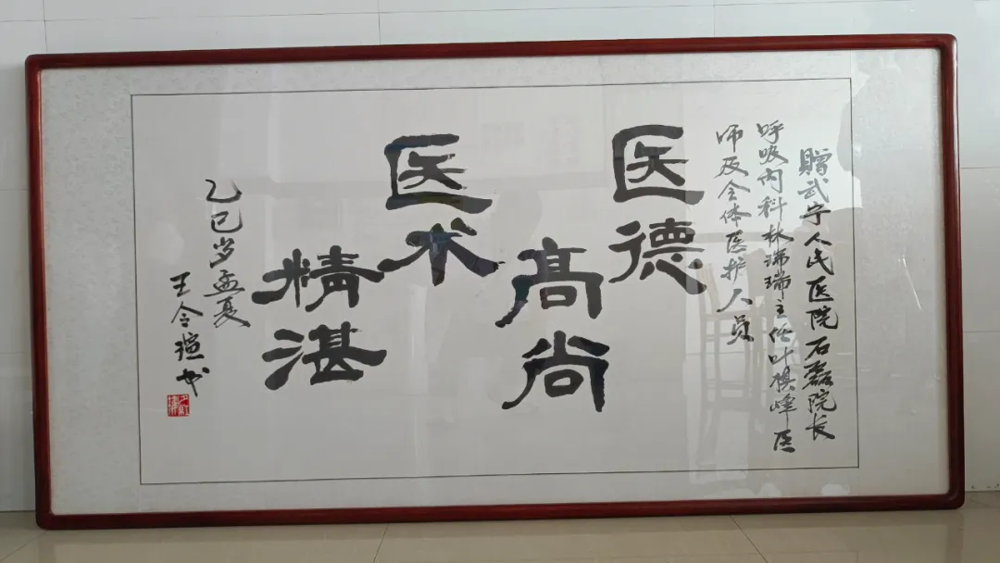 赠武宁人民医院石磊院长
呼吸内科林瑞瑞主任叶模峰医
师及全体医护人员
医德
高尚
医术
精湛
乙巳岁孟夏
王令瑄书